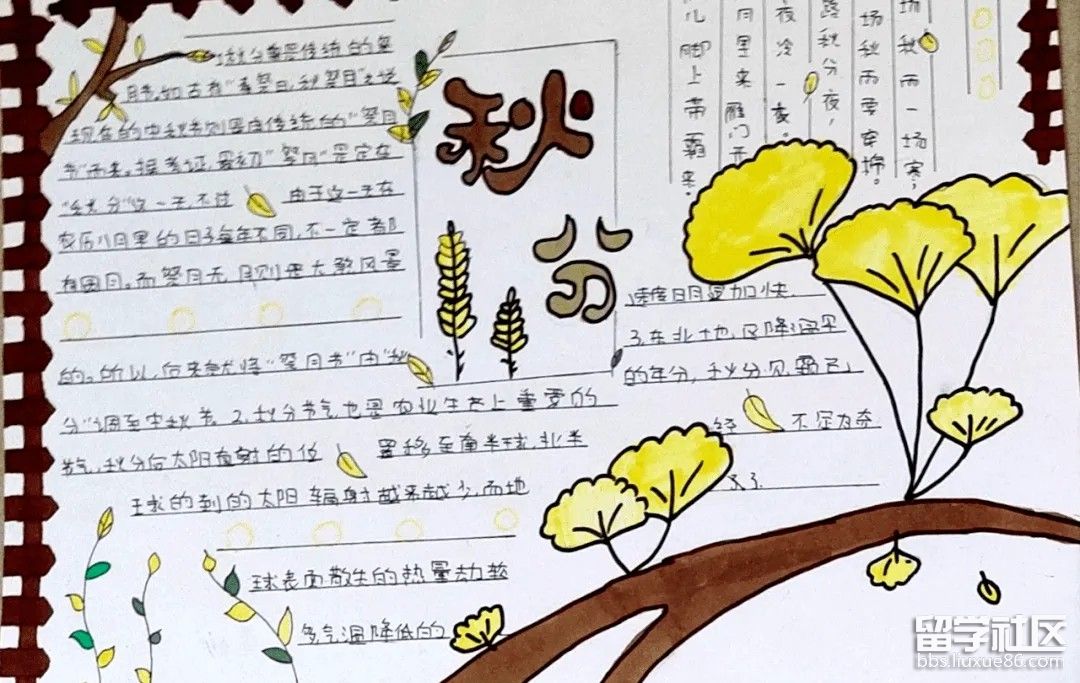 1.秋分曾是传统的祭
月节。如古有"春祭日,秋祭月"之说
现在的中秋节则是由传统的"祭月
节"而来。据考证,最初"祭月"是定在
"秋分"这一天,不过 由于这一天在
农历八月里的日子每年不同,不一定都
有圆月。而祭月无月则是大煞风景
的。所以,后来就将"祭月节"由"秋
分"调至中秋节。2.秋分节气也是农业生产上重要的
节气,秋分后太阳直射的位 置移至南半球,北半
球的到的太阳辐射越来越少,而地
球表面散失的热量却较
多气温降低的
速度明显加快.
3.东北地区降温早
的年分,秋分见霜已
经 不足为奇
了.
秋
分
场秋雨一场寒;
场秋雨要穿棉。
路秋分夜,
夜冷一夜。
月里来雁门开
儿脚上带霜来。
留学社区
bbs.liuxue86.com